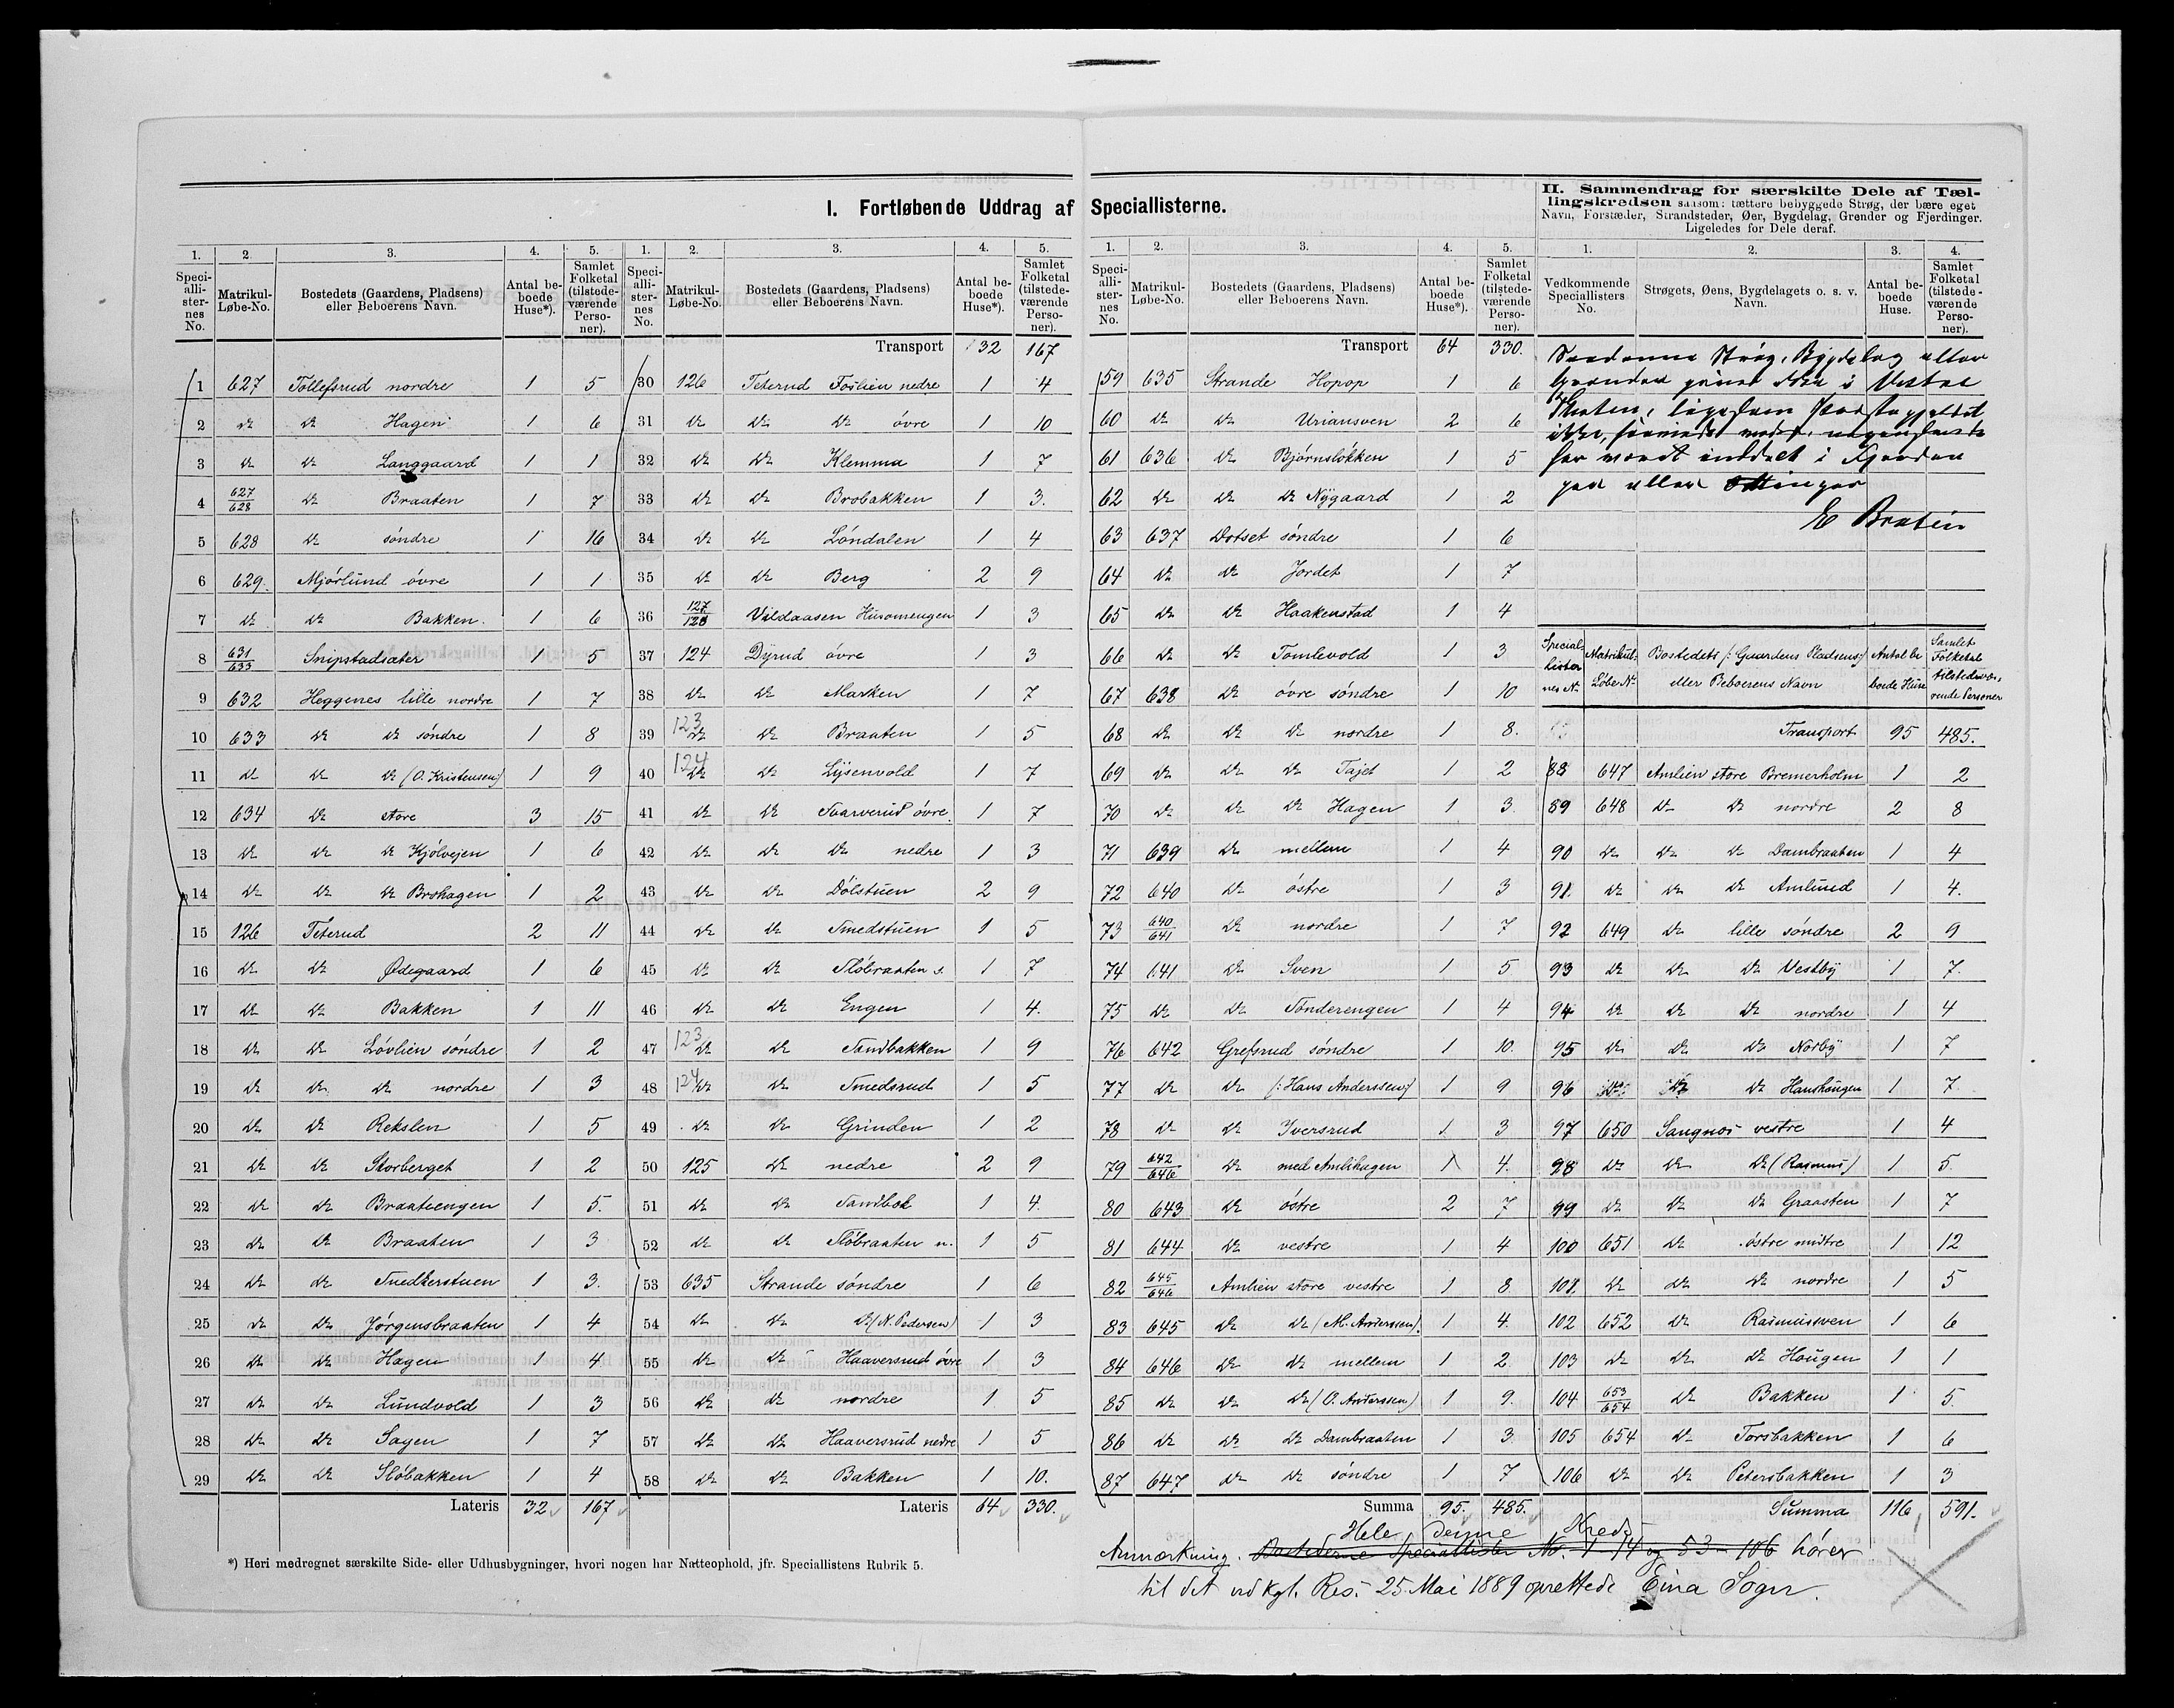 I. Fortløbende Uddrag af Speciallisterne.
II. Sammendrag for særskilte Dele af Tæl-
lingskredsen saasom: tættere bebyggede Strøg, der bære eget
Navn, Forstæder, Strandsteder, Øer, Bygdelag, Grender og Fjerdinger.
Ligeledes for Dele deraf.
1. 2. 3. 4. 5.
Speciallisternes No. Matrikul-Løbe-No. Bostedets (Gaardens, Pladsens) eller Beboerens Navn. Antal beboede Huse*). Samlet Folketal (tilstedeværende Personer).
1 627 Tollefsrud nordre 1 5
2 Do Do Hagen 1 6
3 Do Do Langgaard 1 1
4 627/628 Do Braaten 1 7
5 628 Do søndre 1 16
6 629. Mjørlund øvre 1 1
7 Do Do Bakken. 1 6
8 631/633 Snipstadsæter 1 5
9 632 Heggenes lille nordre 1 7
10 633 Do Do søndre 1 8
11 Do Do Do (O. Kristensen) 1 9
12 634 Do store 3 15
13 Do Do Do Kjølvejen 1 6
14 Do Do Do Brohagen 1 2
15 126 Teterud 2 11
16 Do Do Ødegaard 1 6
17 Do Do Bakken 1 11
18 Do Do Løvlien søndre 1 2
19 Do Do Do nordre 1 3
20 Do Do Rekslen 1 5
21 Do Do Storberget 1 2
22 Do Do Braatengen 1 5.
23 Do Do Braaten 1 3
24 Do Do Snedkerstuen 1 3.
25 Do Do Jørgensbraaten 1 4
26 Do Do Hagen 1 4
27 Do Do Lundvold 1 3
28 Do Do Sagen 1 7
29 Do Do Sløbakken 1 4
Lateris 32 167
1. 2. 3. 4. 5.
Speciallisternes No. Matrikul-Løbe-No. Bostedets (Gaardens, Pladsens) eller Beboerens Navn. Antal beboede Huse*). Samlet Folketal (tilstedeværende Personer).
Transport 32 167
30 126 Teterud Foslien nedre 1 4
31 Do Do Do øvre 1 10
32 Do Do Klemma 1 7
33 Do Do Brobakken 1 3.
34 Do Do Løndalen 1 4
35 Do Do Berg 2 9
36 127/128 Vildaasen Husomengen 1 3
37 124 Dyrud øvre 1 3
38 Do Do Marken 1 7
39 123 Do Do Braaten 1 5
40 124 Do Do Lysenvold 1 7
41 Do Do Svarverud øvre 1 7
42 Do Do Do nedre 1 3
43 Do Do Dølstuen 2 9
44 Do Do Smedstuen 1 5
45 Do Do Sløbraaten s. 1 7
46 Do Do Engen 1 4.
47 123 Do Do Sandbakken 1 9
48 124 Do Do Smedsrud 1 5
49 Do Do Grinden 1 2
50 125 Do nedre 2 9
51 Do Do Sandbæk 1 4.
52 Do Do Sløbraaten n. 1 5
53 635 Strande søndre 1 6
54 Do Do Do (N. Pedersen) 1 3
55 Do Do Haaversrud øvre 1 3
56 Do Do nordre 1 5
57 Do Do Haaversrud nedre 1 5
58 Do Do Bakken 1 10.
Lateris 64 330.
1. 2. 3. 4. 5.
Speciallisternes No. Matrikul-Løbe-No. Bostedets (Gaardens, Pladsens) eller Beboerens Navn. Antal beboede Huse*). Samlet Folketal (tilstedeværende Personer).
Transport 64 330.
59 635 Strande Hopop 1 6
60 Do Do Uriansven 2 6
61 636 Do Bjørnsløkken 1 5
62 Do Do Do Nygaard 1 2
63 637 Dotset søndre 1 6
64 Do Do Jordet 1 7
65 Do Do Haakenstad 1 4
66 Do Do Tomlevold 1 3
67 638 Do øvre søndre 1 10
68 Do Do Do nordre 1 8.
69 Do Do Do Tajet 1 2
70 Do Do Do Hagen 1 3.
71 639 Do mellem 1 4
72 640 Do østre 1 3
73 640/641 Do nordre 1 7
74 641 Do Sven 1 5
75 Do Do Sønderengen 1 4
76 642 Grefsrud søndre 1 10.
77 Do Do (: Hans Anderssen) 1 9
78 Do Do Iversrud 1 3
79 642/646 Do med Amlihagen 1 4.
80 643 Do østre 2 7
81 644 Do vestre 1 4
82 645/646 Amlien store vestre 1 8
83 645 Do Do (M. Anderssen). 1 4.
84 646 Do Do mellem 1 2.
85 Do Do Do (O. Anderssen) 1 9.
86 Do Do Do Dambraaten 1 3
87 647 Do Do søndre 1 7
Summa 95. 485.
1. 2. 3. 4.
Vedkommende Speciallisters No. Strøgets, Øens, Bygdelagets o. s. v. Navn. Antal beboede Huse. Samlet Folketal (tilstedeværende Personer).
Saadanne Strøg, Bygdelag eller
Grender gives ikke i Vestre
Thoten, ligesom Præstegjeldet
ikke,
har været inddelt i Fjerdin
ger eller Ottinger
E Braten
Speciallisternes No Matrikul-Løbe No Bostedets (: Gaardens Pladsens:) eller Beboerens Navn Antal beboede Huse Samlet Folketal tilstedeværende Personer
Transport 95 485.
88 647 Amlien store Bremerholm 1 2
89 648 Do Do nordre 2 8
90 Do Do Do Dambraaten 1 4
91. Do Do Do Amlund 1 4.
92 649 Do lille søndre 2 9
93 Do Do Do Vestby 1 7.
94 Do Do Do nordre 1 4
95 Do Do Do Norby 1 7
96 Do Do Do Hanshaugen 1 7
97 650 Sangnes vestre 1 4
98 Do Do Do (Rasmus) 1 5.
99 Do Do Do Graasten 1 7
100 651 Do østre midtre 1 12
101. Do Do Do nordre 1 5
102 652 Do Rasmusven 1 6
103 Do Do Do Haugen 1 1
104 653/654 Do Bakken 1 5.
105 654 Do Torsbakken 1 6
106 Do Do Petersbakken 1 3
Summa 116 591.
*) Heri medregnet særskilte Side- eller Udhusbygninger, hvori nogen har Natteophold, jfr. Speciallistens Rubrik 5.
Hele denne Kreds
Anmærkning. Bostederne Speciallister No. 1-14 og 53-106 hører
til det ved kgl. Res. 25 Mai 1889 oprettede Eina Sogn.